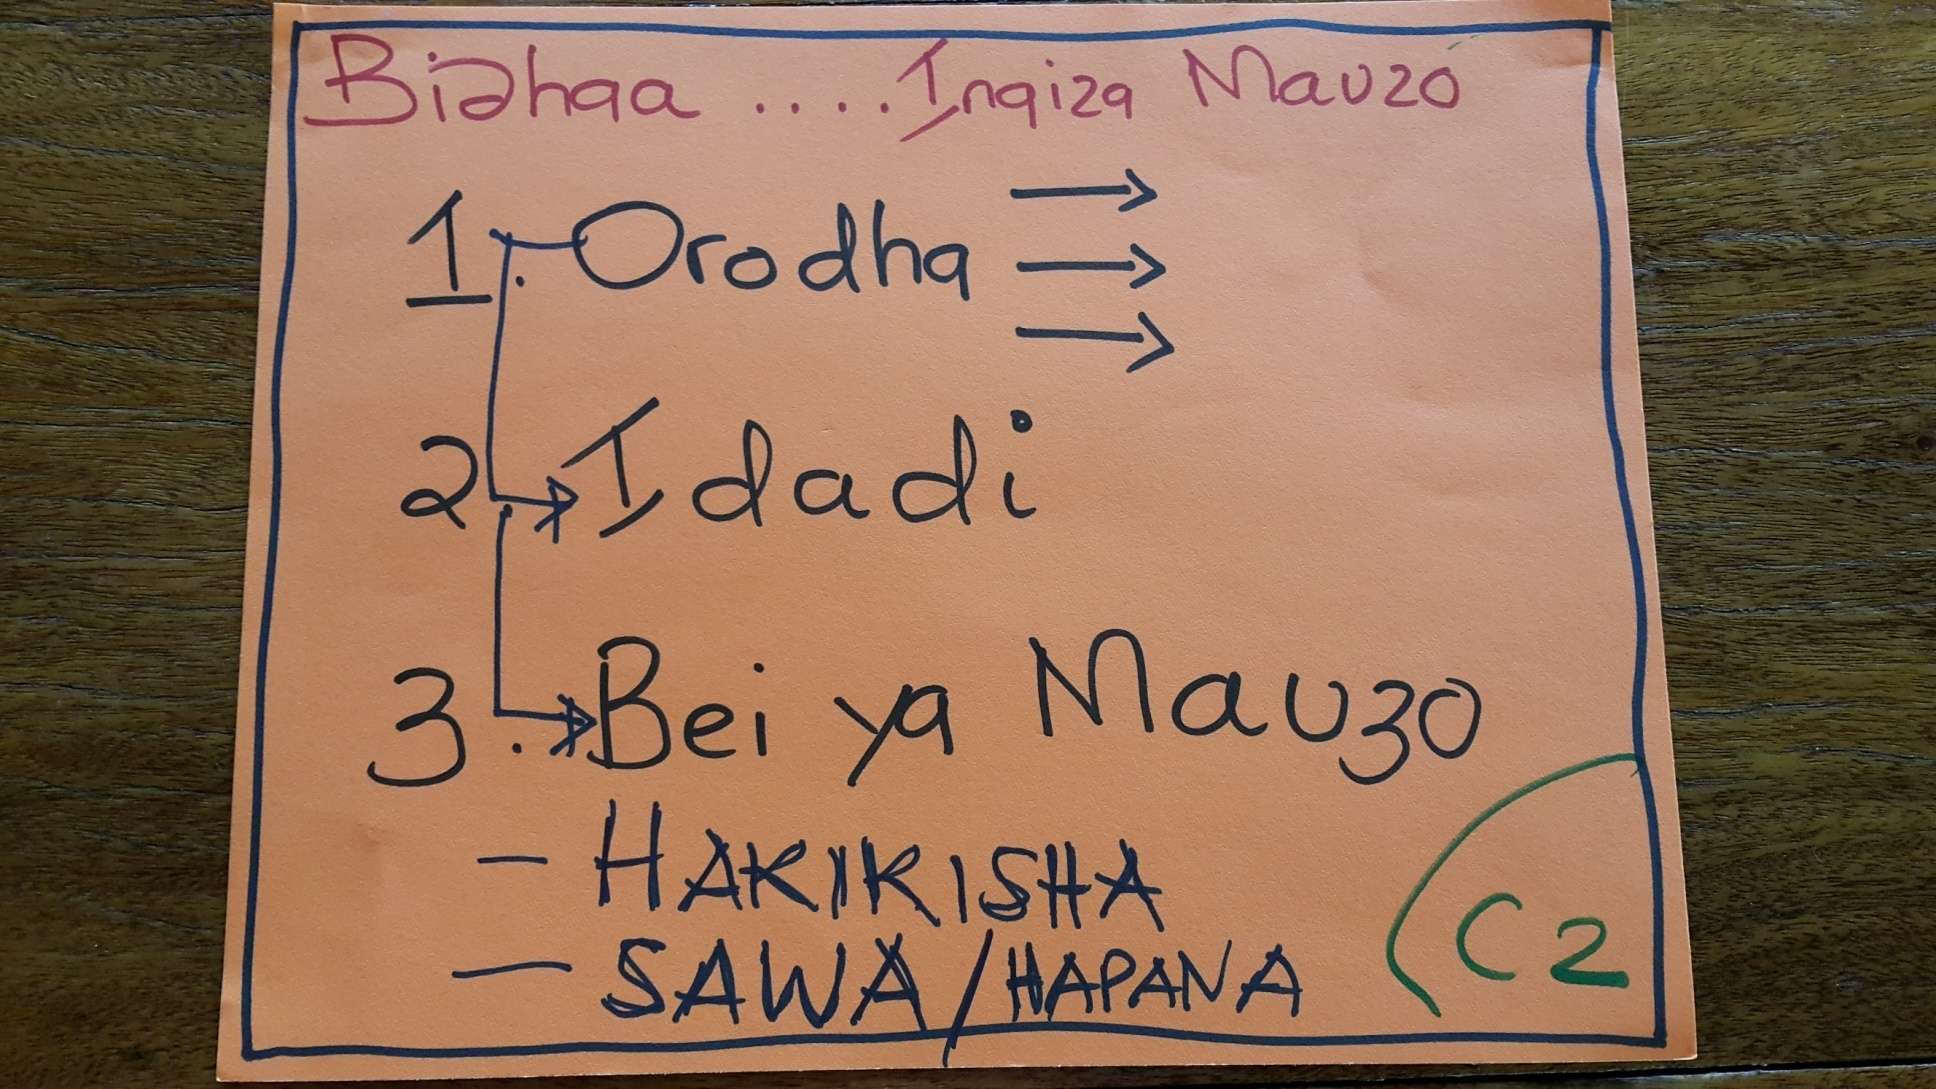 Bidhaa ....Ingiza Mauzo
1. Orodha → → →
2. Idadi
3. Bei ya Mauzo
- HAKIKISHA
- SAWA/HAPANA
C2